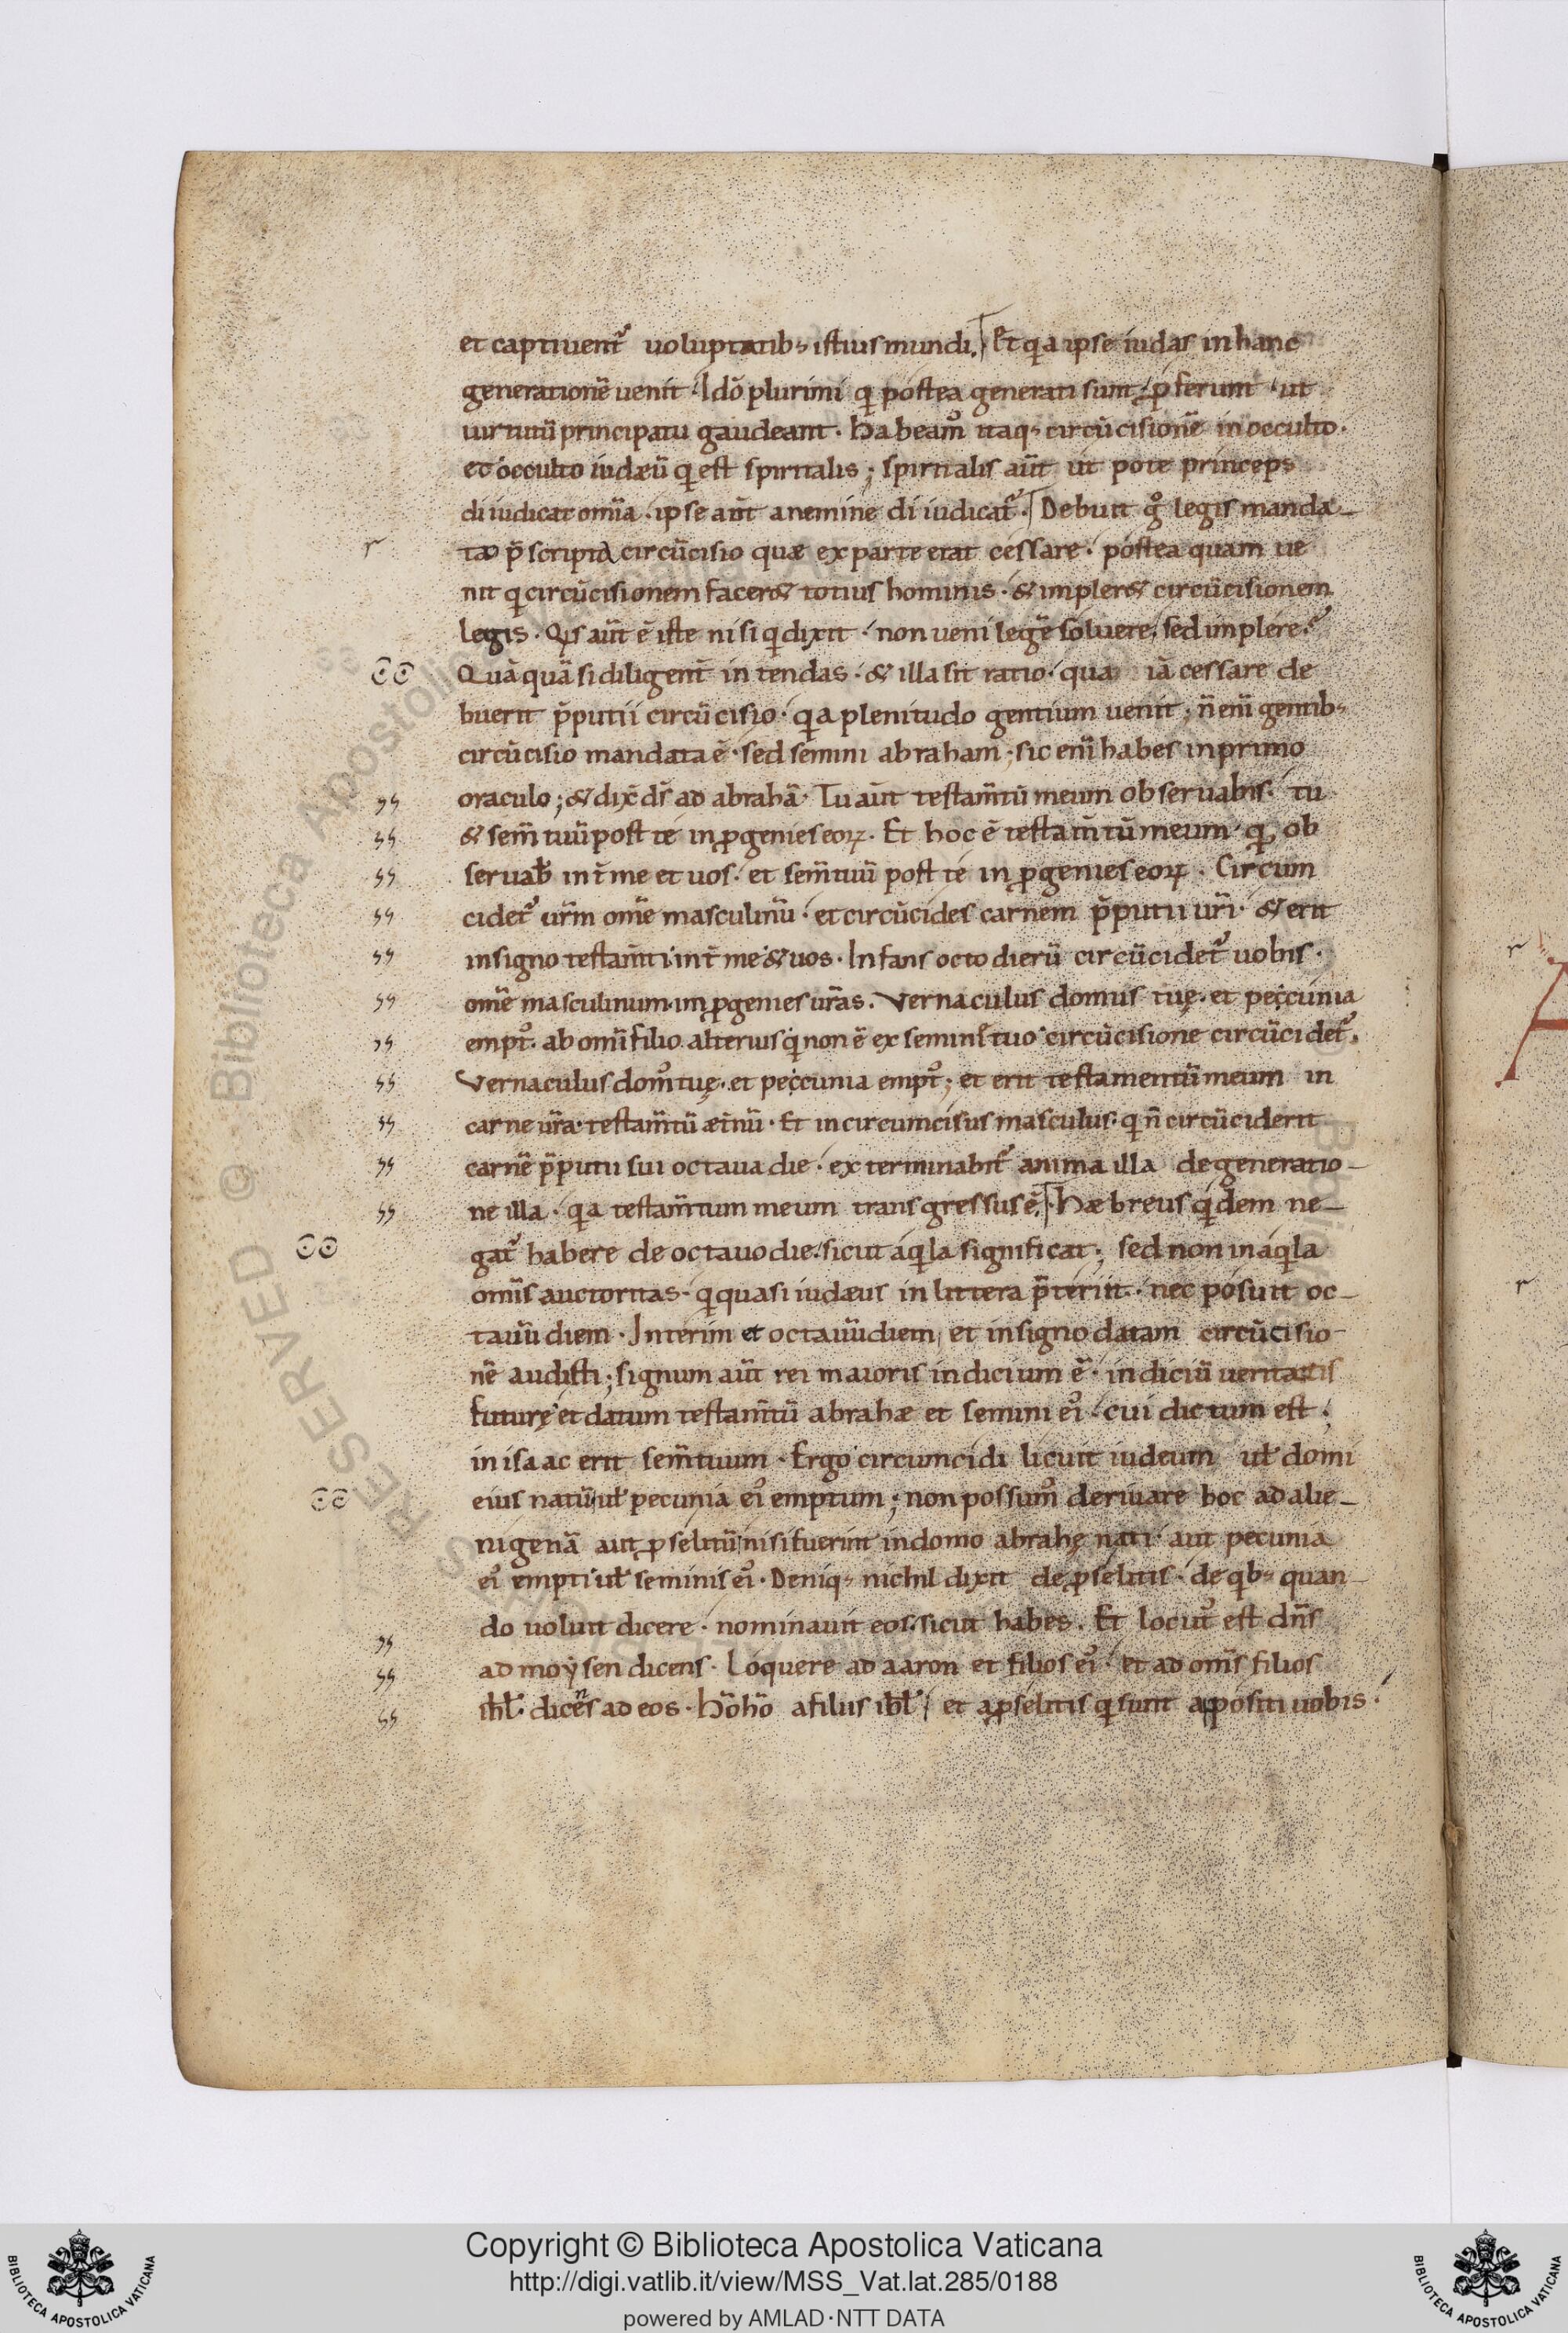 et captiuent᷒ uoluptatib; istius mundi. Et qa ipse iudas in hanc
generationē uenit. Idō plurimi qi postea generati sunt. p̄ferunt ut
uirtutū principatu gaudeant. habeam᷒ itaq; circūcisionē in occulto.
et occulto iudæū qi est spiritalis; spiritalis aūt ut pote princeps
diiudicat om̄ia. ipse aūt a nemine diiudicat᷒. Debuit g° legis manda-
to p̄scripta circūcisio quæ ex parte erat cessare. postea quam ue
nit qi circūcisionem facer& totius hominis. & impler& circūcisionem
legis. Qis aūt ē iste nisi qi dixit. non ueni legē soluere, sed implere.
Quāquā si diligent̄ intendas. & illa sit ratio. qua iā cessare de
buerit p̄putii circūcisio. qa plenitudo gentium uenit; n̄ enī gentib;
circūcisio mandata ē. sed semini abraham; sic enī habes in primo
oraculo; & dix̄ d̄s ad abrahā. Tu aūt testam̄tū meum obseruabis. tu
& sem̄ tuū post te in progenies eoꝝ. Et hoc ē testam̄tū meum. qd ob
seruab̄ int̄ me et uos. et sem̄ tuū post te in progenies eoꝝ. Circum
cidet᷒ ur̄m om̄e masculinū. et circūcides carnem p̄putii ur̄i. & erit
in signo testam̄ti int̄ me & uos. Infans octo dierū circūcidet᷒ uobis.
om̄e masculinum in progenies ur̄as. Vernaculus domus tuę. et peccunia
empt᷒. ab om̄i filio alterius qi non ē ex semine tuo circūcisione circūcidet᷒.
Vernaculus dom᷒ tuę. et peccunia empt᷒; et erit testamentū meum in
carne ur̄a. testam̄tū æt̄nū. Et incircumcisus masculus. qi n̄ circūciderit
carnē p̄putii sui octaua die. exterminabit᷒ anima illa de generatio-
ne illa. qa testam̄tum meum transgressus ē. Hæbreus qidem ne-
gat᷒ habere de octauo die. sicut aqila significat; sed non in aqila
om̄is auctoritas. qi quasi iudæus in littera p̄teriit. nec posuit oc-
tauū diem. Interim et octauū diem, et in signo datam circūcisio-
nē audisti; signum aūt rei maioris indicium ē. indiciū ueritatis
futurę et datum testam̄tū abrahæ et semini ei᷒. cui dictum est.
in isaac erit sem̄ tuum. Ergo circumcidi licuit iudeum ul̄ domi
eius natū ul̄ pecunia ei᷒ emptum; non possum᷒ deriuare hoc ad alie-
nigenā aut proselitū nisi fuerint in domo abrahę nati. aut pecunia
ei᷒ empti ul̄ seminis ei᷒. Deniq; nichil dixit de proselitis. de qib; quan
do uoluit dicere. nominauit eos. sicut habes. Et locut᷒ est dn̄s
ad moẏsen dicens. Loquere ad aaron et filios ei᷒. et ad om̄s filios
ihl̄. dicens ad eos. Hō hō a filiis ihl̄, et a proselitis qi sunt appositi uobis.
Copyright © Biblioteca Apostolica Vaticana
http://digi.vatlib.it/view/MSS_Vat.lat.285/0188
powered by AMLAD·NTT DATA